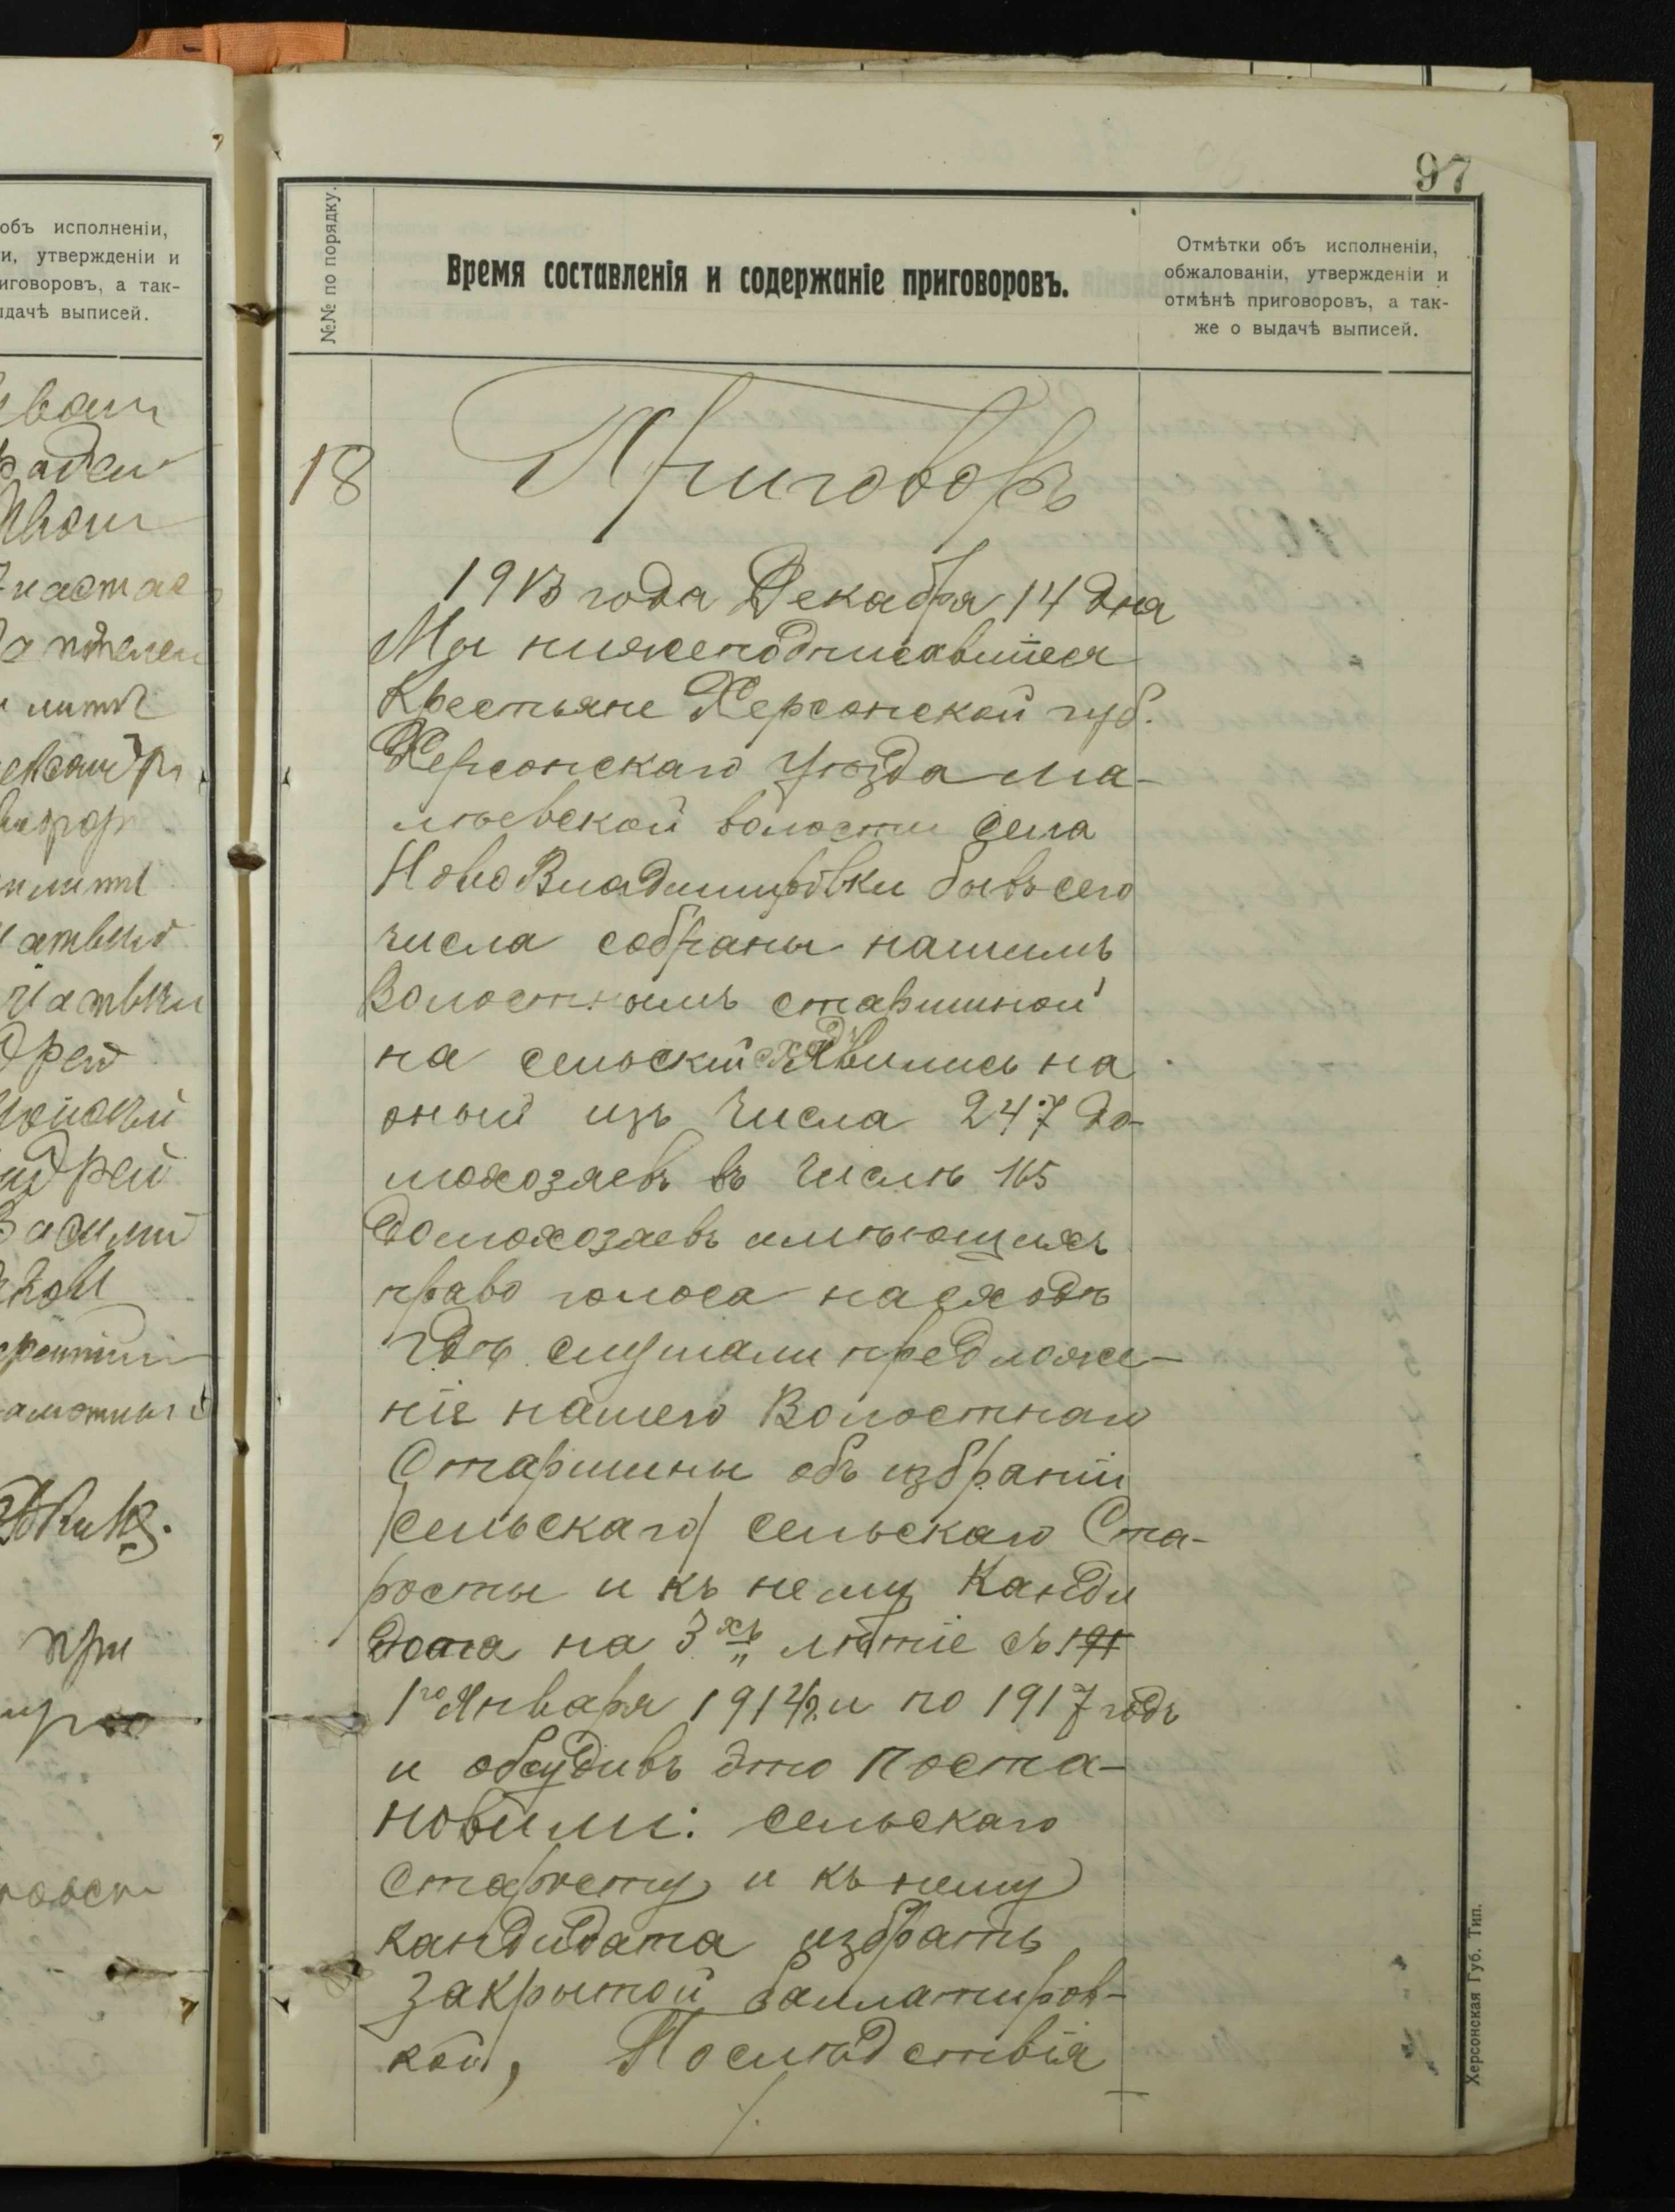 объ исполненіи,
и, утвержденіи и
иговоровъ, а так-
дачѣ выписей.
при
97
№№ по порядку.
Время составленія и содержаніе приговоровъ.
Отмѣтки объ исполненіи,
обжалованіи, утвержденіи и
отмѣнѣ приговоровъ, а так-
же о выдачѣ выписей.
18
Приговоръ
1913 года Декабря 14 дня
Мы нижеподписавшіеся
Крестьяне Херсонской губ.
Херсонскаго Уѣзда
волости села
Ново Владимировки бывъ сего
числа собраны нашимъ
Волостнымъ старшиной
на сельскій сходъ явились на
оный изъ числа 247 до-
мохозяевъ въ числѣ 165
домохозяевъ имѣющихъ
право голоса на сходѣ
гдѣ слушали предложе-
ніе нашего Волостнаго
Старшины объ избраніи
/сельскаго/ сельскаго Ста-
росты и къ нему Канди
дата на 3хъ лѣтіе съ 191
1го Января 1914 г. и по 1917 годъ
и обсудивъ это поста-
новили: сельскаго
старосту и къ нему
кандидата избрать
закрытой баллатиров-
кой, Послѣдствія
Херсонская Губ. Тип.